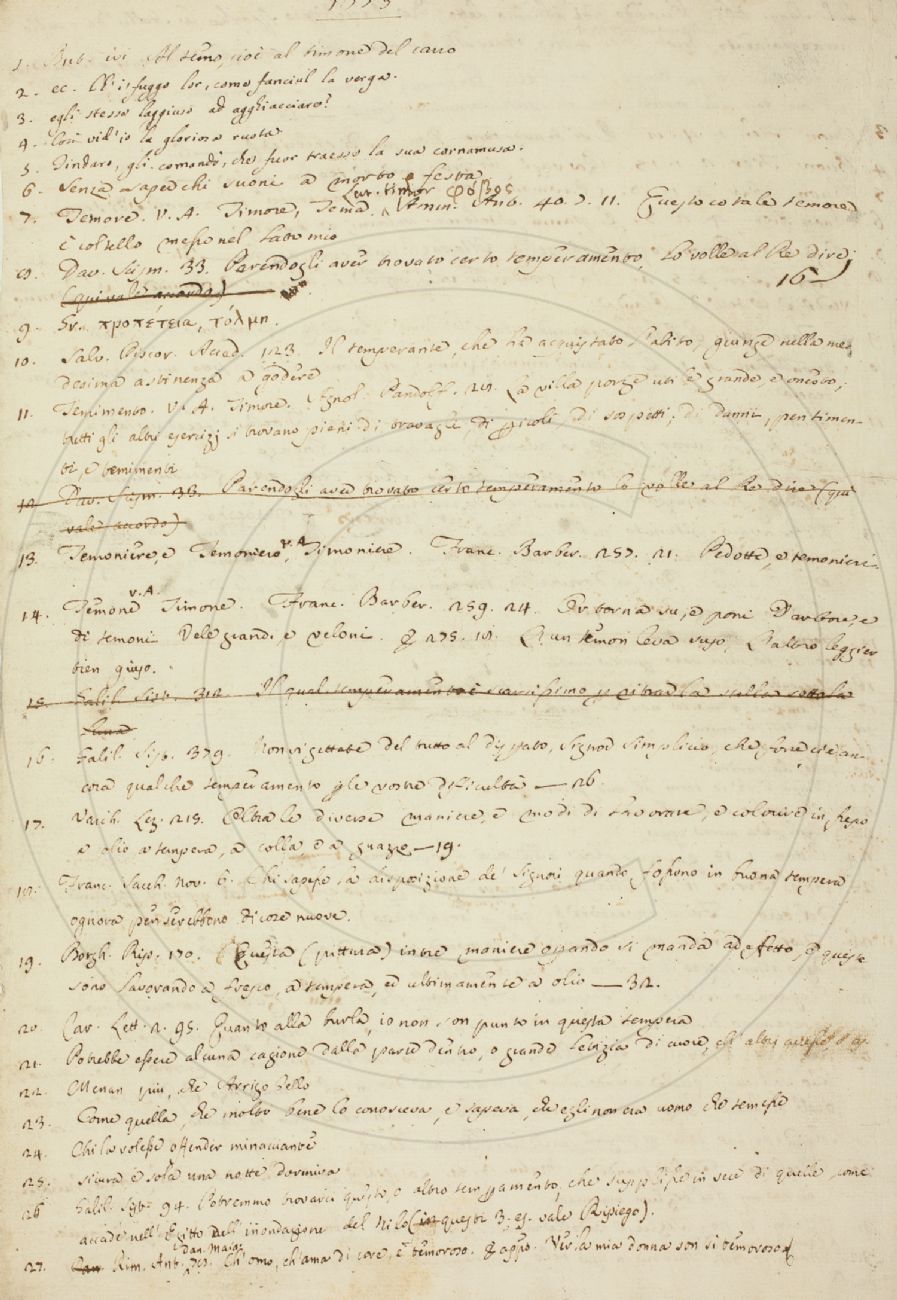 1. But. ivi. Al temo, cioè al timone del carro
2. ec. Ch'i' fuggo lor, come fanciul la verga.
3. egli stesso laggiuso ad agghiacciare?
4. Così vid'io la gloriosa ruota
5. Tindaro, gli comandò, che fuor traesse la sua cornamusa.
6. Senza saper chi suoni a morto o festa
7. Temore. V. A. Timore, Tema. Lat. timor φόβος Rim. Ant. 40. 11. Questo cotale temore
È coltello messe nel lato mio
8. Dav. Scism. 33. Parendogli aver trovato certo temperamento, lo volle al Re dire;
(qui vale accordo) 16
9. Gr. προπέτεια, τόλμη.
10. Salv. Piscor. Accad. 123. Il temperante, che ha acquistato l'abito, giunge nella me-
desima astinenza a godere
11. Temimento. V. A. Timore. Agnol. Pandolf. La villa porge utile grande, e onesto;
tutti gli altri esercizj si trovano pieni di travagli, di pericoli di sospetti, di danni, pentimen-
ti, e temimenti
12. Dav. Scism. 33. Parendogli aver trovato certo temperamento lo volle al Re dire (qui
vale accordo)
13. Temoniere, e Temoniero v. A. Timoniere. Franc. Barber. 257. 21. Pedotte, e temonieri
14. Temone v. A. Timone. Franc. Barber. 259. 24. Er torna su, e poni D'arbore, e
di temoni Vele grandi, e veloni. E 275. Q'un temon leva suso, L'altro leggier
bien giuso.
15. Galil. Sist. 312. Il qual temperamento è scarsissimo per ritrar la stella sotto la
Luna
16. Galil. Sist. 379. Non vi gettate del tutto al disperato, Signor Simplicio, che forse ci è an-
cora qualche temperamento per le vostre difficultà — 26.
17. Varch. Lez. 213. Oltra le diverse maniere, e modi di lavorare, e colorire in fresco
a olio a tempera, a colla e a guazzo — 19.
18. Franc. Sacch. Nov. 6. Chi sapesse la disposizione de' Signori quando fossono in buona tempera
ognora penserebbono di cose nuove.
19. Borgh. Rip. 170. Questa (pittura) in tre maniere operando si manda ad effetto, e queste
sono lavorando a fresco, a tempera, ed ultimamente a olio — 32.
20. Car. Lett. 2. 95. Quanto alla burla, io non son punto in questa tempera
21. Potrebbe essere alcuna cagione dalla parte dentro, o grande letizia di cuore,
22. Menan più, che Arrigo bello
23. Come quella, che molto bene lo conosceva, e sapeva, che egli non era uomo che temesse
24. Chi la volesse offender minacciante
25. sicura, e sola una notte dormiva
26 Galil. Sist. 94. Potremmo trovarci questo, o altro temperamento, che supplisse in vece di quelle, come
accade nell'Egitto dell'inondazione del Nilo (in questi 3. es. vale Ripiego).
27. Rim. Ant. Dan. Maian. Ch'omo, ch'ama di core, è temoroso. E appr. Ver la mia donna son sì temoroso